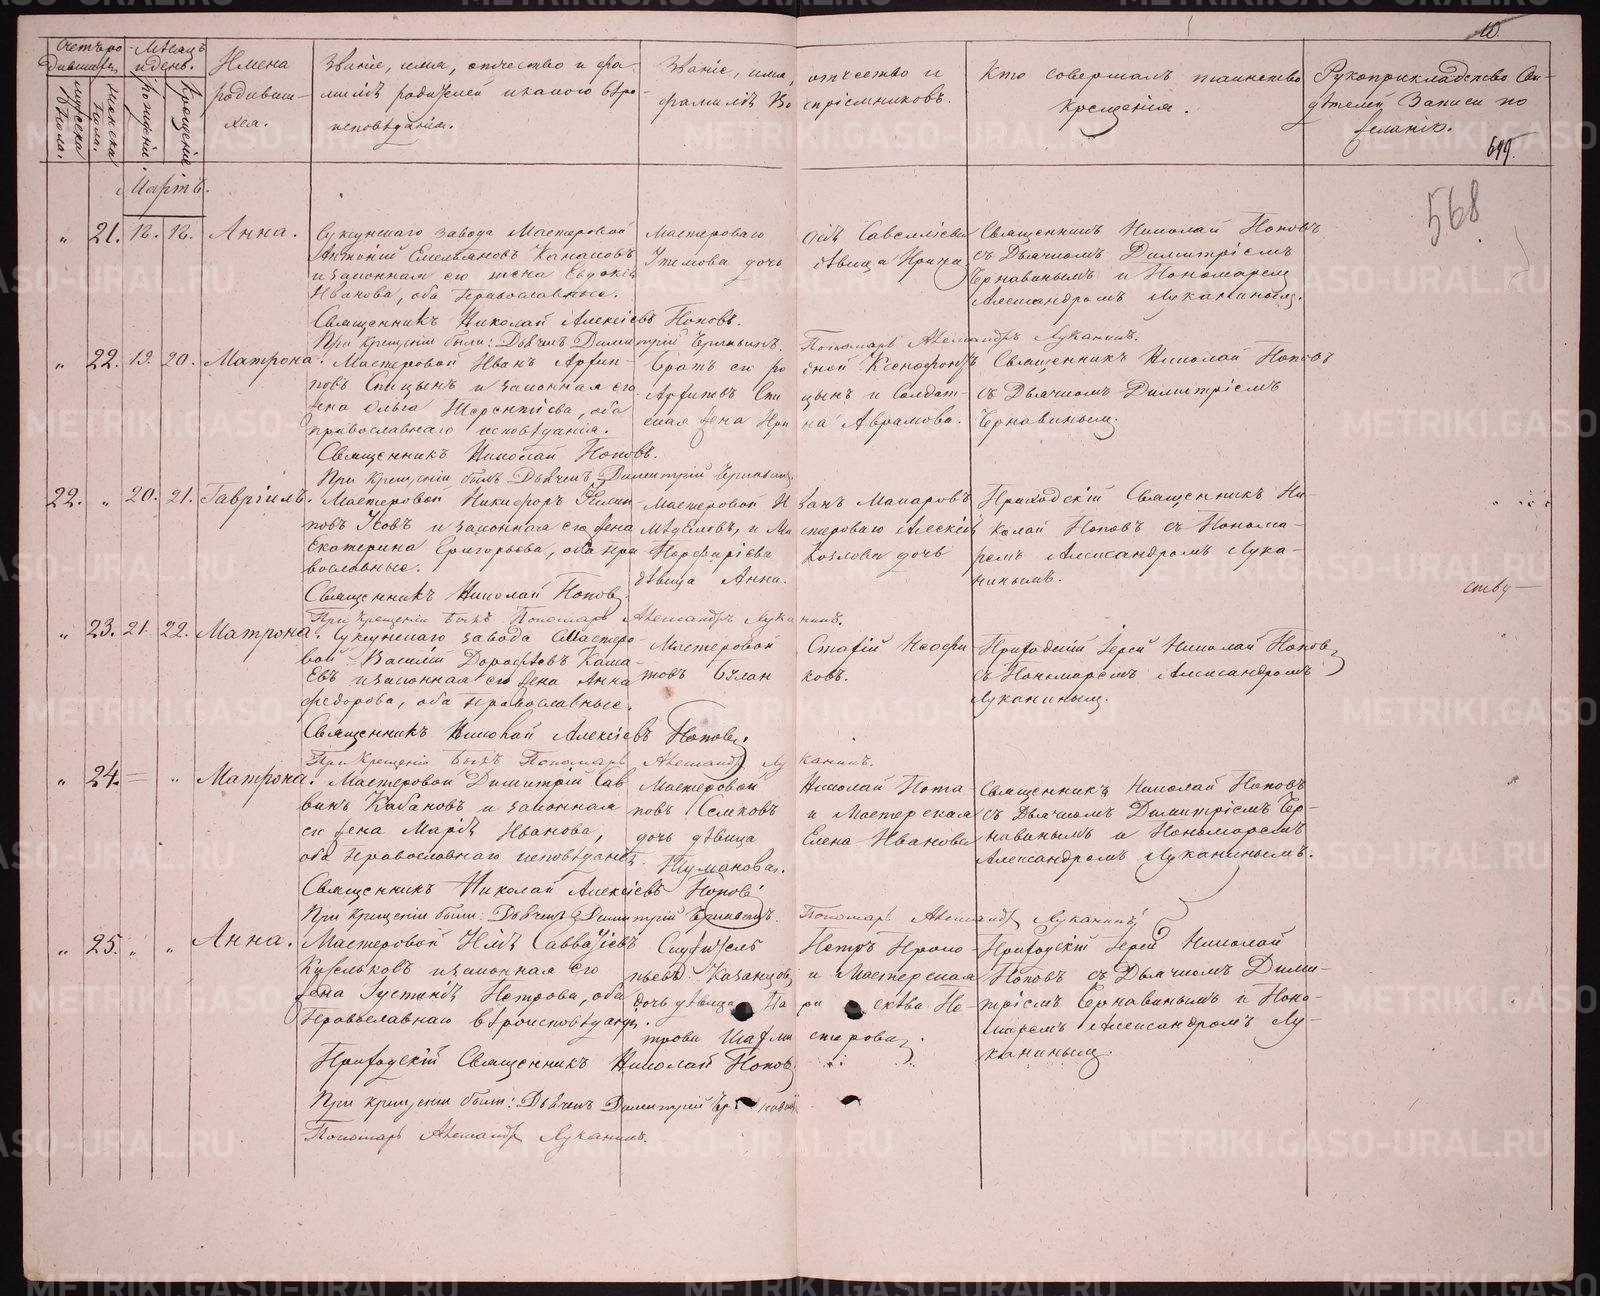 10.
Счетъ родившихся.
Мѣсяцъ и день.
Имена родившихся.
Званіе, имя, отчество и фамилія родителей и какого вѣроисповѣданія.
Званіе, имя, отчество и фамилія воспріемниковъ.
Кто совершалъ таинство крещенія.
Рукоприкладство свидѣтелей записи по желанію.
мужеска пола.
женска пола.
рожденія
крещенія
649.
568
Мартъ.
„ 21. 12. 12. Анна.
Сукунскаго завода Мастеровой
Антоній Емельяновъ
и законная его жена Евдокія
Иванова, оба Православные.
Мастероваго
Савелліева
Утемова дочь
дѣвица Ирина
Священникъ Николай Поповъ
съ Дьячкомъ Димитріемъ
Чернавинымъ и Пономаремъ
Александромъ Луканинымъ.
Священникъ Николай Алексіевъ Поповъ.
При крещеніи были: Дьячекъ Димитрій Чернавинъ.
Пономарь Александръ Луканинъ.
„ 22. 19. 20. Матрона.
Мастеровой Иванъ Архиповъ
Спицынъ и законная его
жена Ольга Терентіева, оба
православнаго исповѣданія.
Братъ его родной Ксенофонтъ
Архиповъ Спицынъ и Солдатская
жена Ирина Аврамова.
Священникъ Николай Поповъ
съ Дьячкомъ Димитріемъ
Чернавинымъ.
Священникъ Николай Поповъ.
При Крещеніи былъ Дьячекъ Димитрій Чернавинъ.
22. „ 20. 21. Гавріилъ.
Мастеровой Никифоръ Филиповъ
Усовъ и законная его жена
Екатерина Григорьева, оба православные.
Мастеровой Иванъ Макаровъ
и Мастероваго Алексія
Порфиріева Козлова дочь
дѣвица Анна.
Приходскій Священникъ Николай
Поповъ съ Пономаремъ
Александромъ Луканинымъ.
ству
Священникъ Николай Поповъ
При Крещеніи былъ Пономарь Александръ Луканинъ.
„ 23. 21. 22. Матрона.
Сукунскаго завода Мастеровой
Василій Дорофѣевъ
и законная его жена Анна
Федорова, оба православные.
Мастеровой
Неофитовъ
Приходскій Іерей Николай Поповъ
съ Пономаремъ Александромъ
Луканинымъ.
Священникъ Николай Алексіевъ Поповъ.
При Крещеніи былъ Пономарь Александръ Луканинъ.
„ 24. = „ Матрона.
Мастеровой Димитрій Саввинъ
Кабановъ и законная
его жена Марія Иванова,
оба Православнаго исповѣданія.
Мастеровой Николай Потаповъ
Семковъ и Мастерская
дочь дѣвица Елена Иванова
Туманова.
Священникъ Николай Поповъ
съ Дьячкомъ Димитріемъ Чернавинымъ
и Пономаремъ
Александромъ Луканинымъ.
Священникъ Николай Алексіевъ Поповъ
При Крещеніи были: Дьячекъ Димитрій Чернавинъ.
Пономарь Александръ Луканинъ
„ 25. „ „ Анна.
Мастеровой Нилъ Савватіевъ
Кузельковъ и законная его
жена Іустинія Петрова, оба
Православнаго вѣроисповѣданія.
Служитель Петръ Прокопьевъ
Казанцовъ и Мастерская
дочь дѣвица
Приходскій Іерей Николай
Поповъ съ Дьячкомъ Димитріемъ
Чернавинымъ и Пономаремъ
Александромъ Луканинымъ.
Приходскій Священникъ Николай Поповъ
При крещеніи были: Дьячекъ Димитрій
Пономарь Александръ Луканинъ.
METRIKI.GASO-URAL.RU